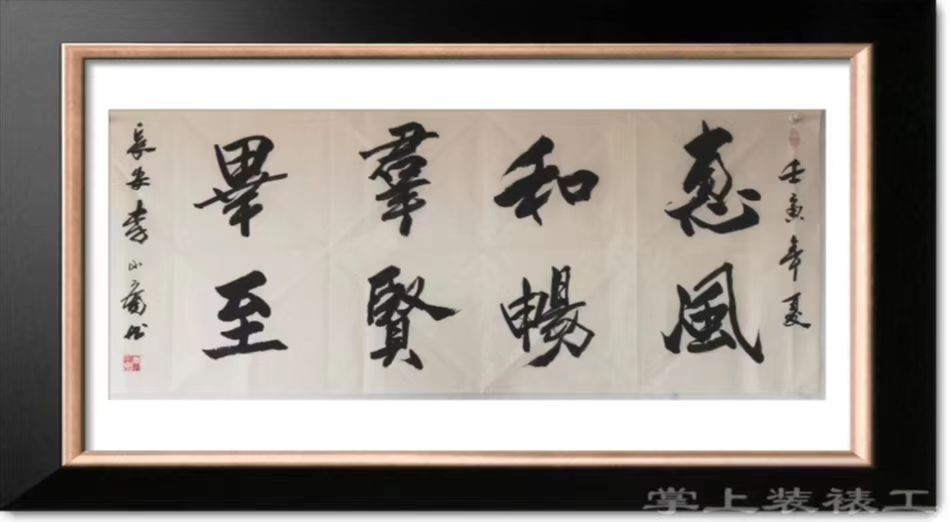 壬寅年夏
惠風
和暢
羣賢
畢至
長安李
掌上装裱工